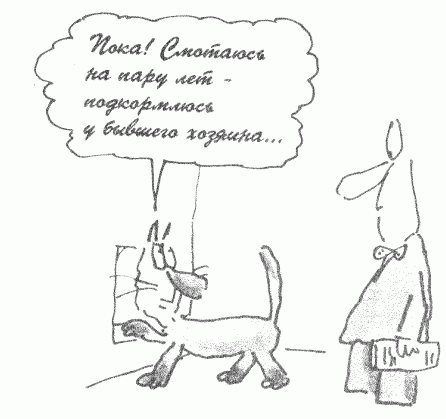 Пока! Смотаюсь
на пару лет -
подкормлюсь
у бывшего хозяина...